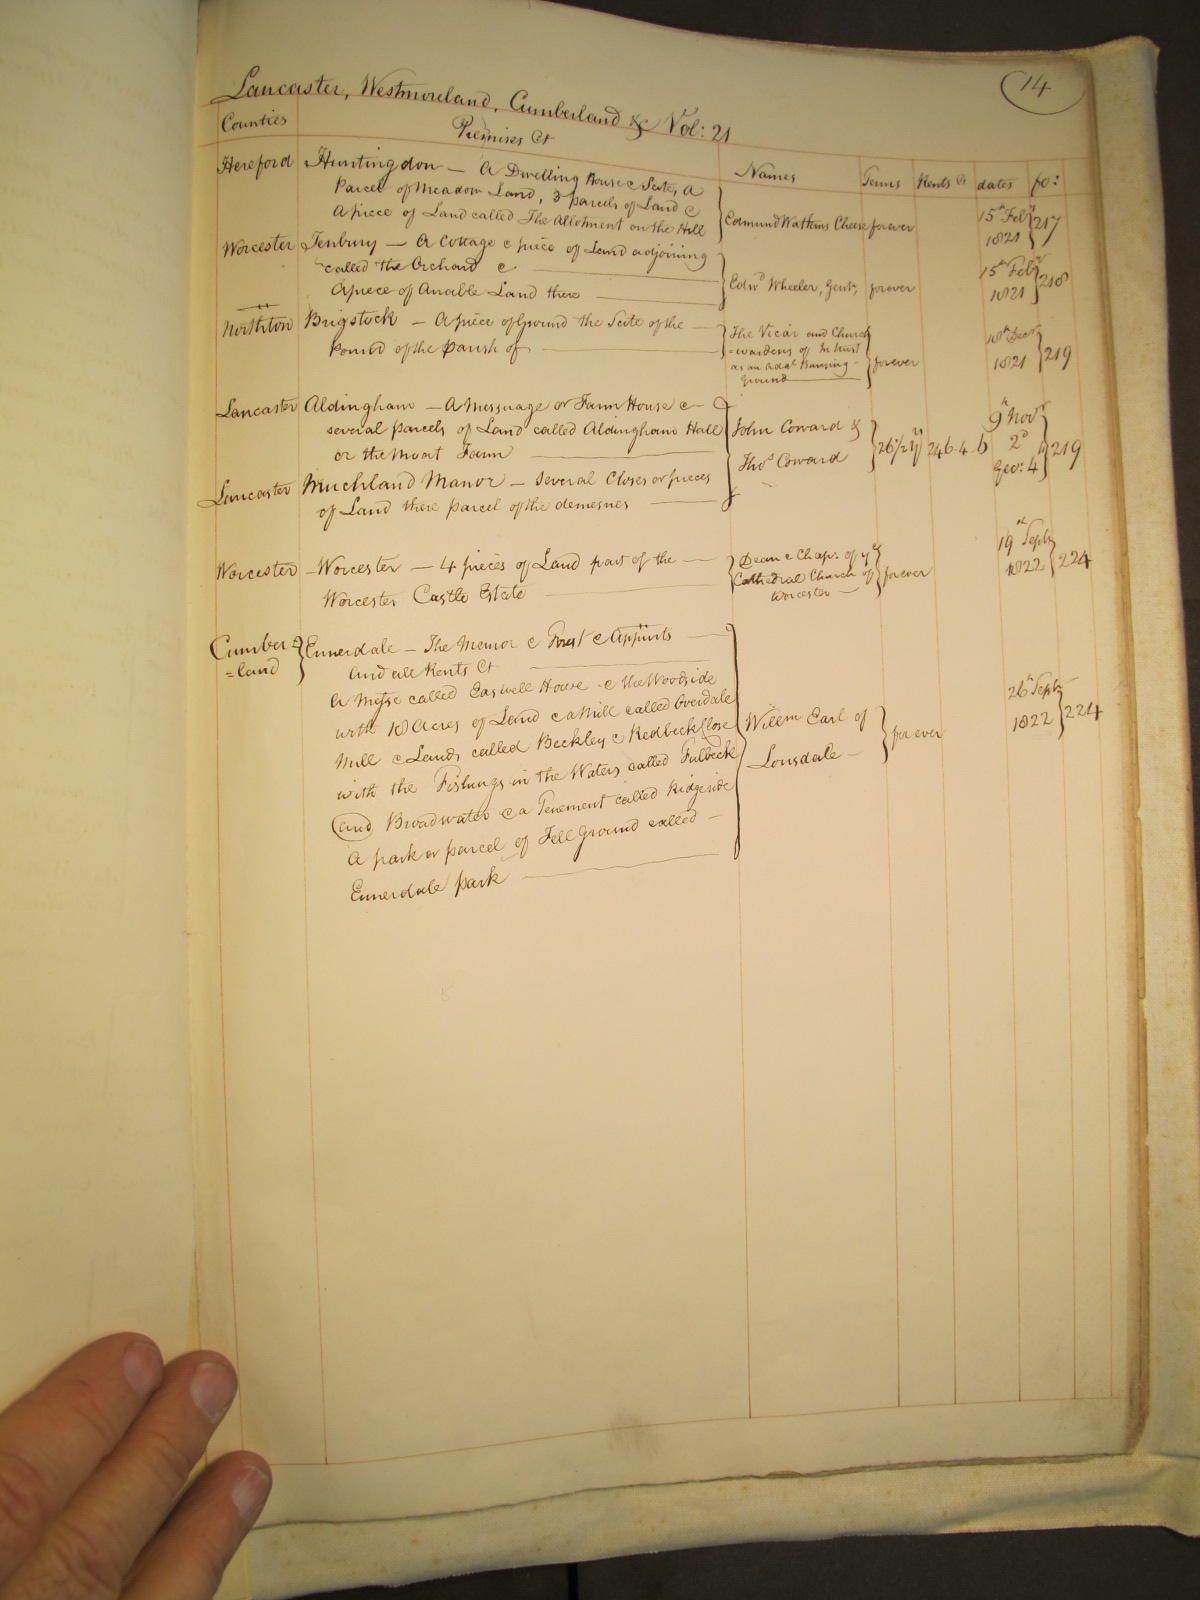 14
Lancaster, Westmoreland, Cumberland &c Vol: 21
Counties Premises &c Names Terms Rents &c dates fo:
Hereford Huntingdon — A Dwelling House & Scite, A
Parcel of Meadow Land, 3 parcels of Land &
A piece of Land called The Allotment on the Hill
Edmund Watkins Cheese forever 15th Feby 1821 217
Worcester Tenbury — A Cottage & piece of Land adjoining
called the Orchard &
A piece of Arable Land there
Edwd Wheeler, Gentn, forever 15th Feby 1821 218
Northton Brigstock — A piece of Ground the Scite of the
Pound of the Parish of
The Vicar and Church
=wardens of In trust
as an Addl Burying
Ground
forever 18th Decr 1821 219
Lancaster Aldingham — A Messuage or Farm House &
several parcels of Land called Aldingham Hall
or the Moat Farm
Lancaster Muchland Manor — Several Closes or pieces
of Land there parcel of the demesnes
John Coward &
Thos Coward
26 1/2 yrs 246.4.6 9th Novr 2d Geo: 4 219
Worcester — Worcester — 4 pieces of Land part of the
Worcester Castle Estate
Dean & Chapr of ye
Cathedral Church of
Worcester
forever 19th Septr 1822 224
Cumber
=land Ennerdale — The Manor & Forest & Appurts
and all Rents &c
A Messe called Easwell House & the Woodside
with 18 Acres of Land & a Mill called Overdale
Mill & Lands called Beckley & Redbeck Close
with the Fishings in the Waters called Fulbeck
and Broadwater & a Tenement called Ridgeside
A park or parcel of Fell Ground called
Ennerdale park
Willm Earl of
Lonsdale
for ever 26th Septr 1822 224